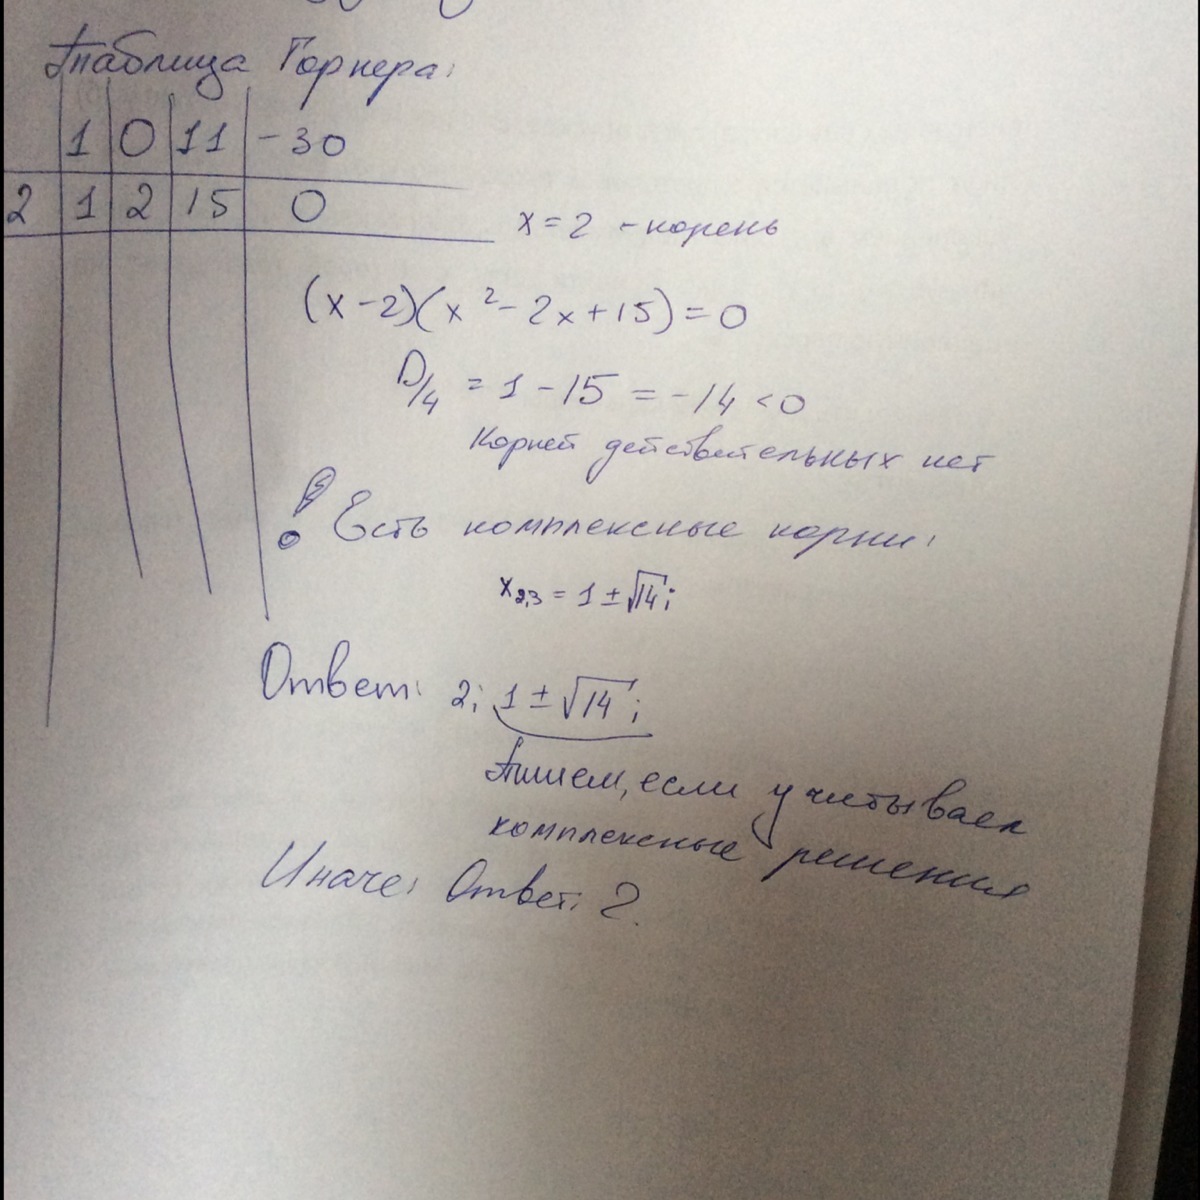 Таблица Горнера:
1 0 11 -30
2 1 2 15 0
x=2 - корень
(x-2)(x²-2x+15)=0
D/4 = 1-15 = -14 <0
Корней действительных нет
! Есть комплексные корни:
x2,3 = 1±√14i
Ответ: 2; 1±√14i
Пишем, если учитываем
комплексные решения
Иначе: Ответ: 2.